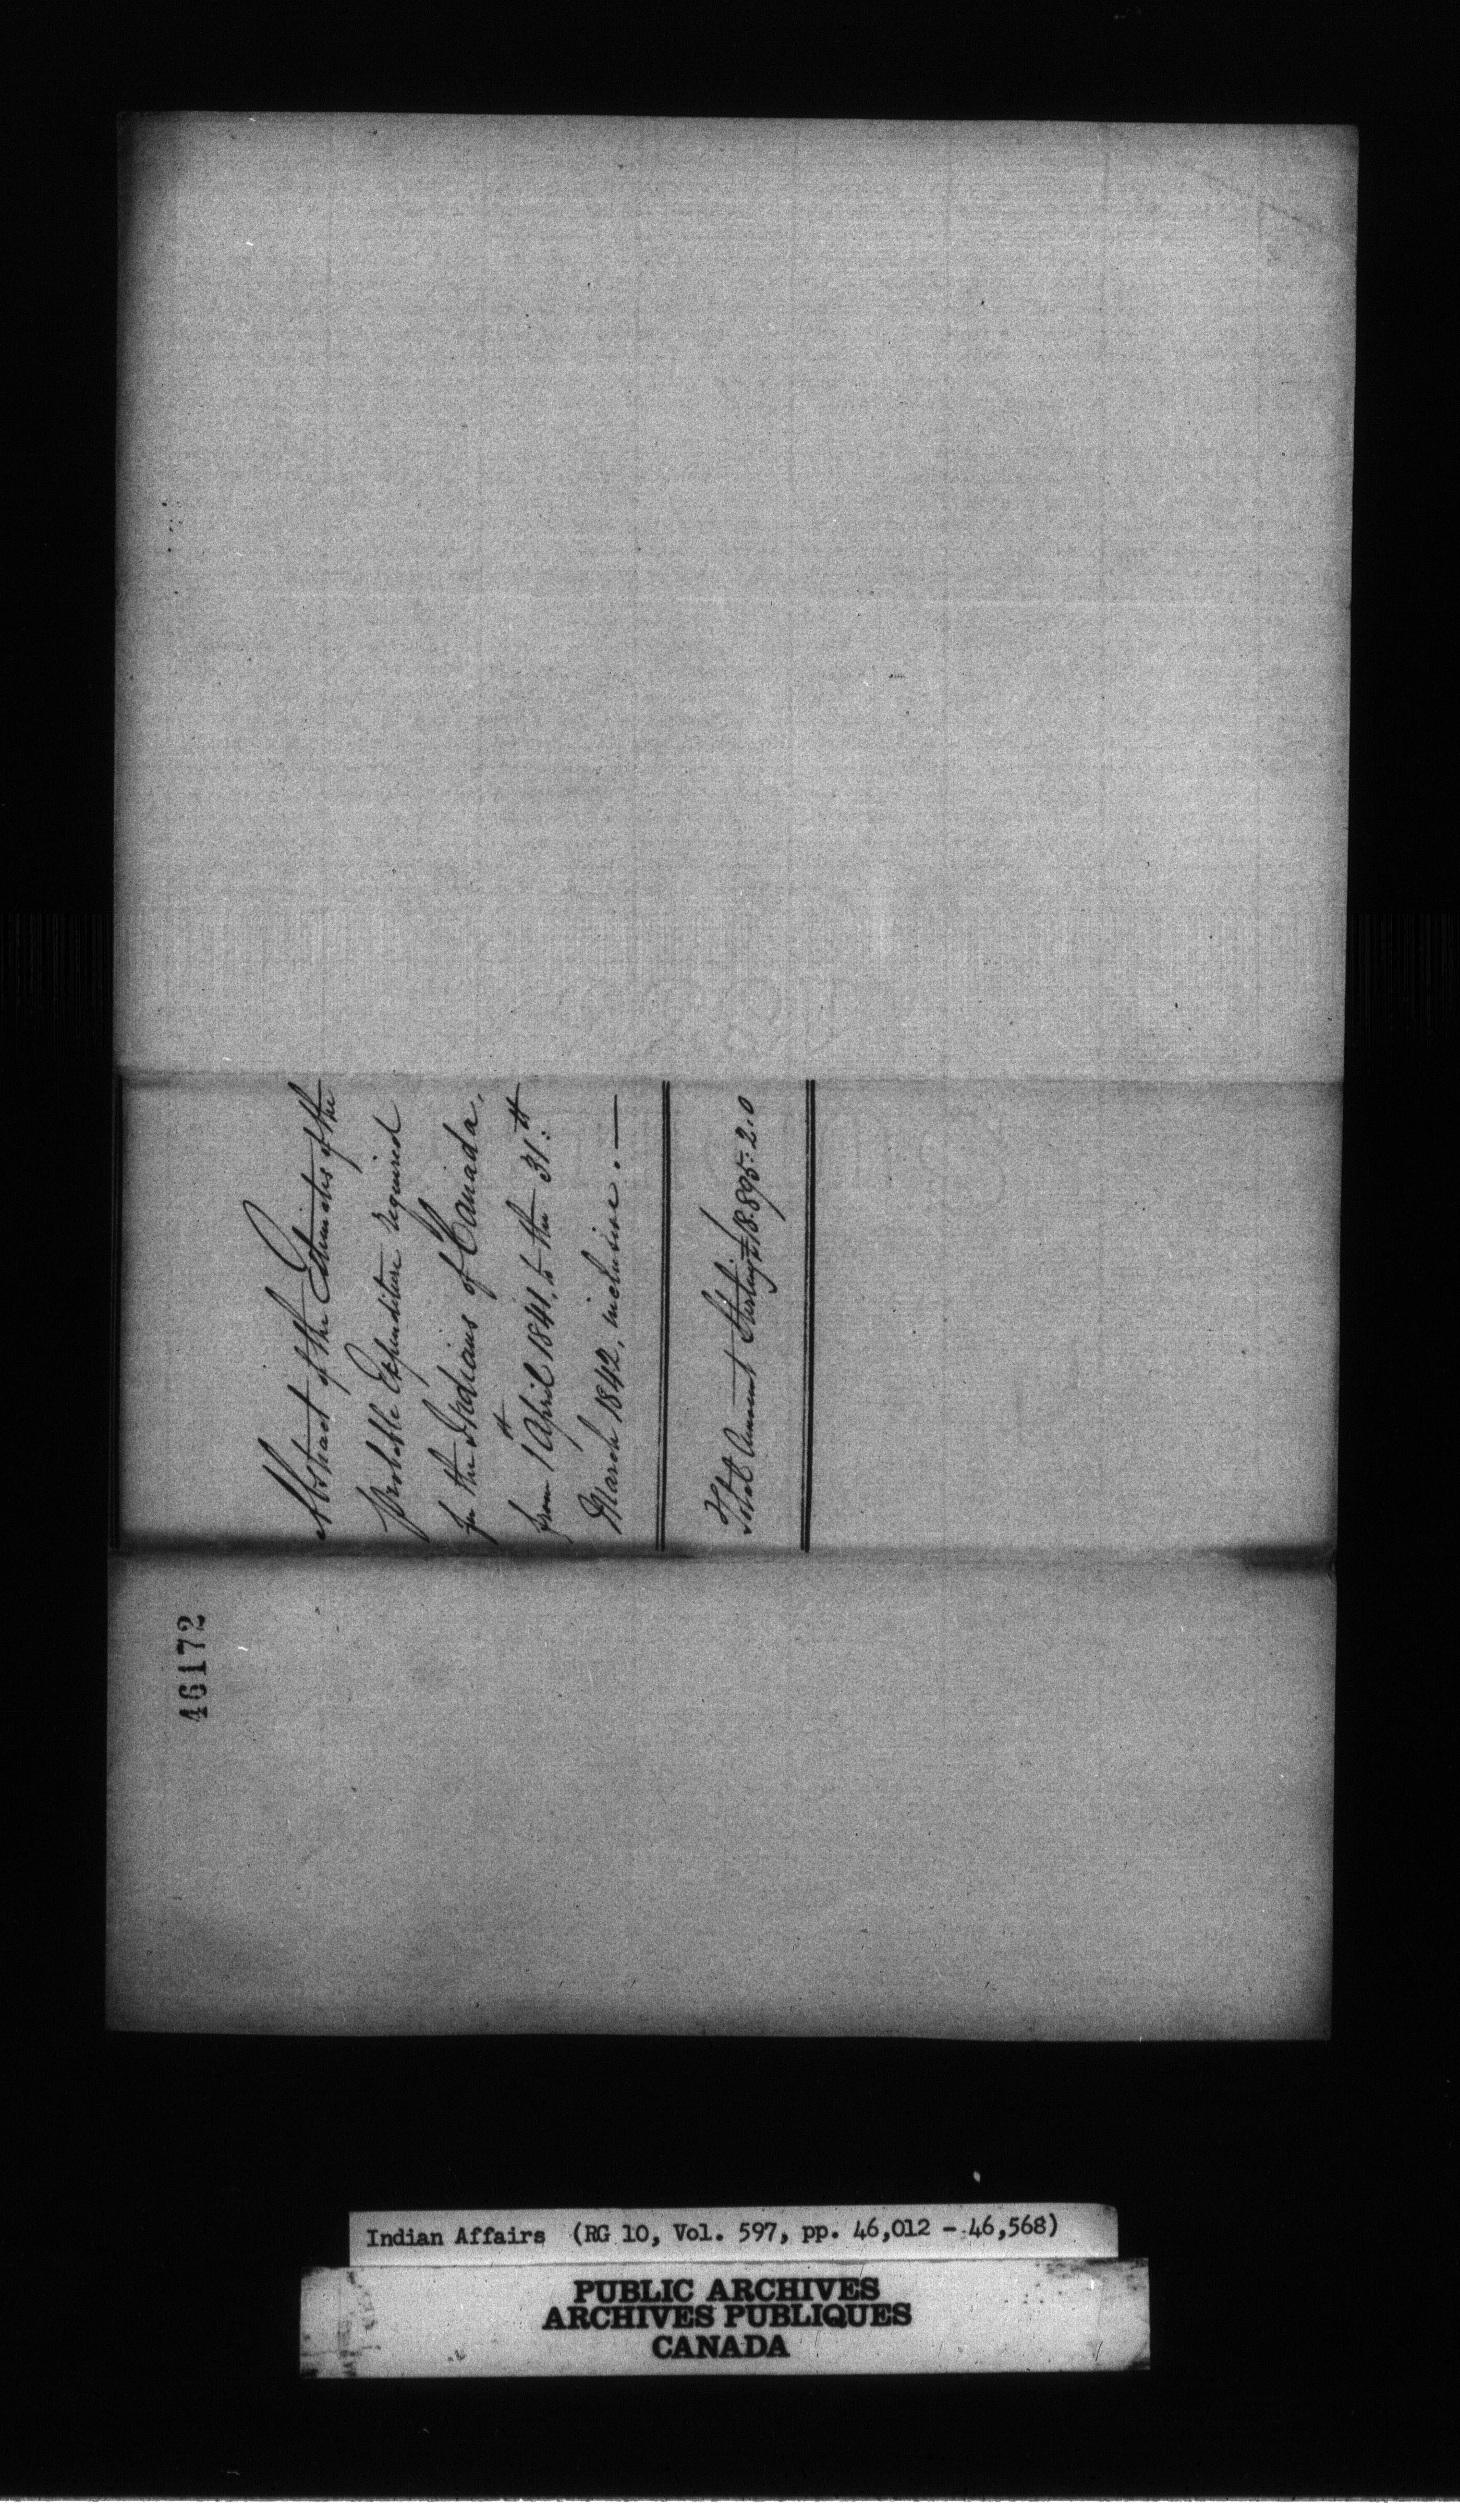 Abstract of the Estimates of the
probable Expenditure required
for the Indians of Canada,
from 1st April 1841, to the 31st
March 1842, inclusive. —
Total Amount Sterling £18.895.2.0
46172
Indian Affairs (RG 10, Vol. 597, pp. 46,012 - 46,568)
PUBLIC ARCHIVES
ARCHIVES PUBLIQUES
CANADA